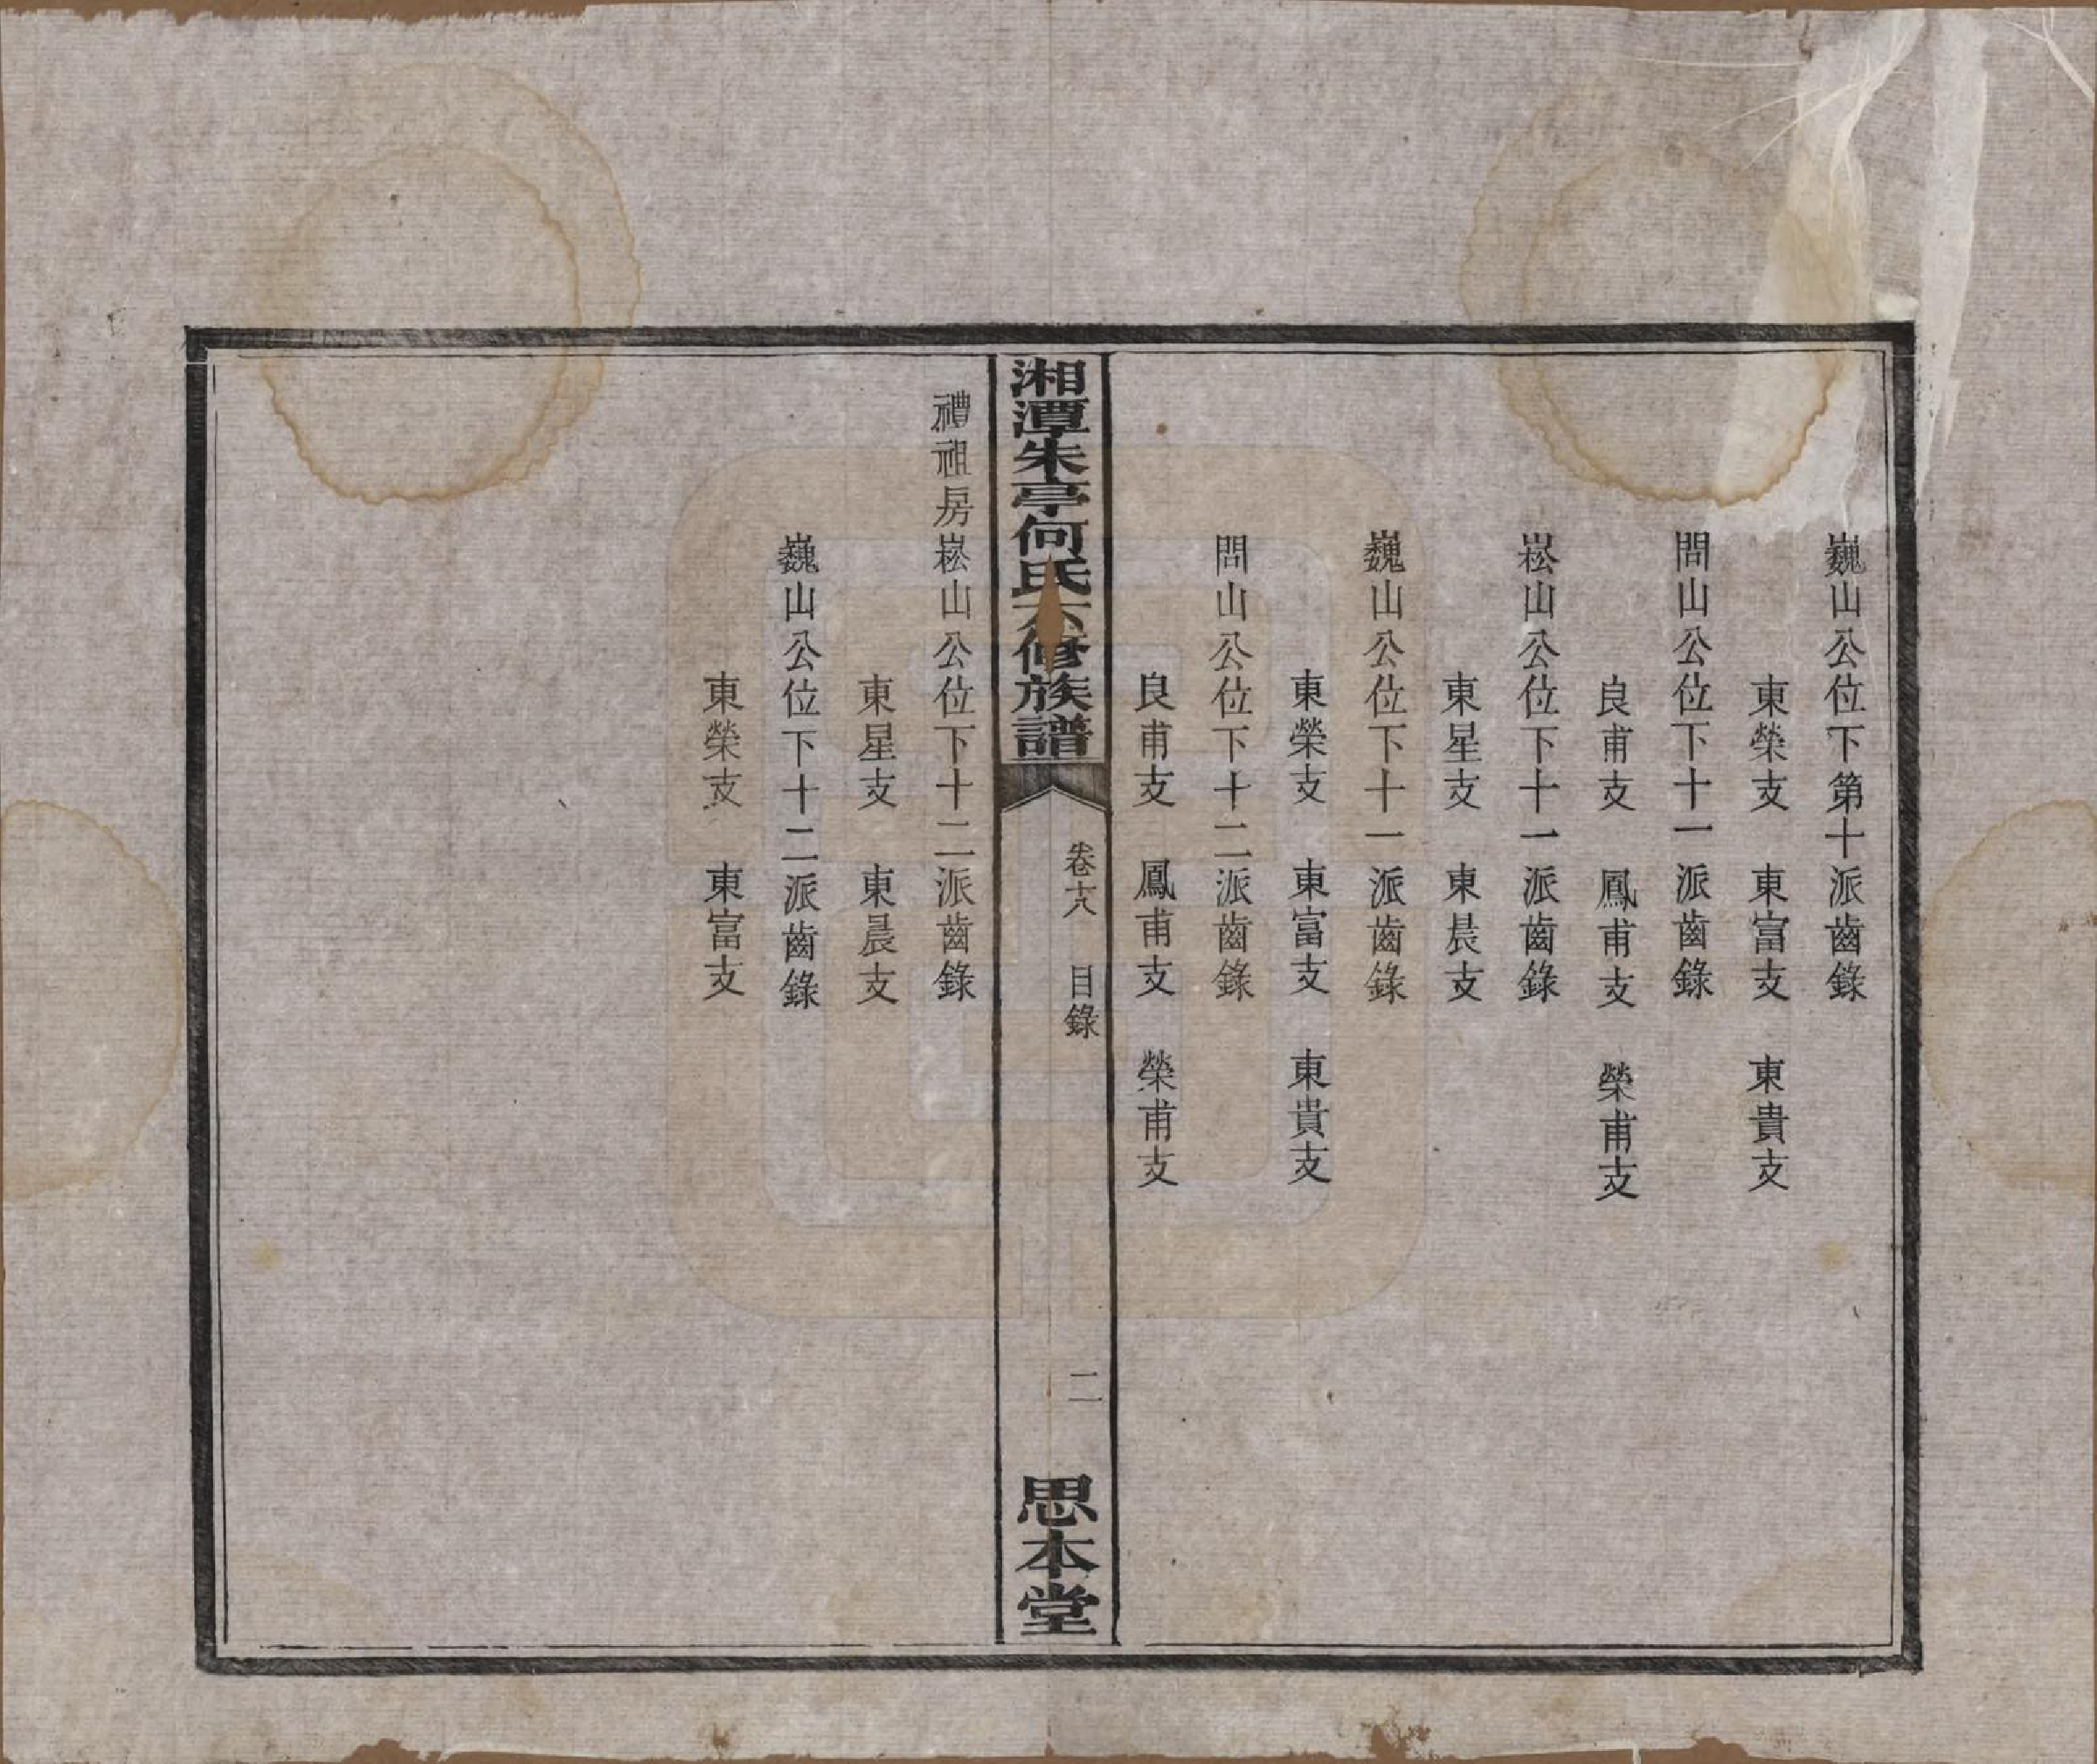 巍山公位下第十派齒錄
東榮支 東富支 東貴支
問山公位下十一派齒錄
良甫支 鳳甫支 榮甫支
崧山公位下十一派齒錄
東星支 東晨支
巍山公位下十一派齒錄
東榮支 東富支 東貴支
問山公位下十二派齒錄
良甫支 鳳甫支 榮甫支
湘潭朱亭何氏六修族譜
卷十八 目錄
二
思本堂
禮祖房崧山公位下十二派齒錄
東星支 東晨支
巍山公位下十二派齒錄
東榮支 東富支